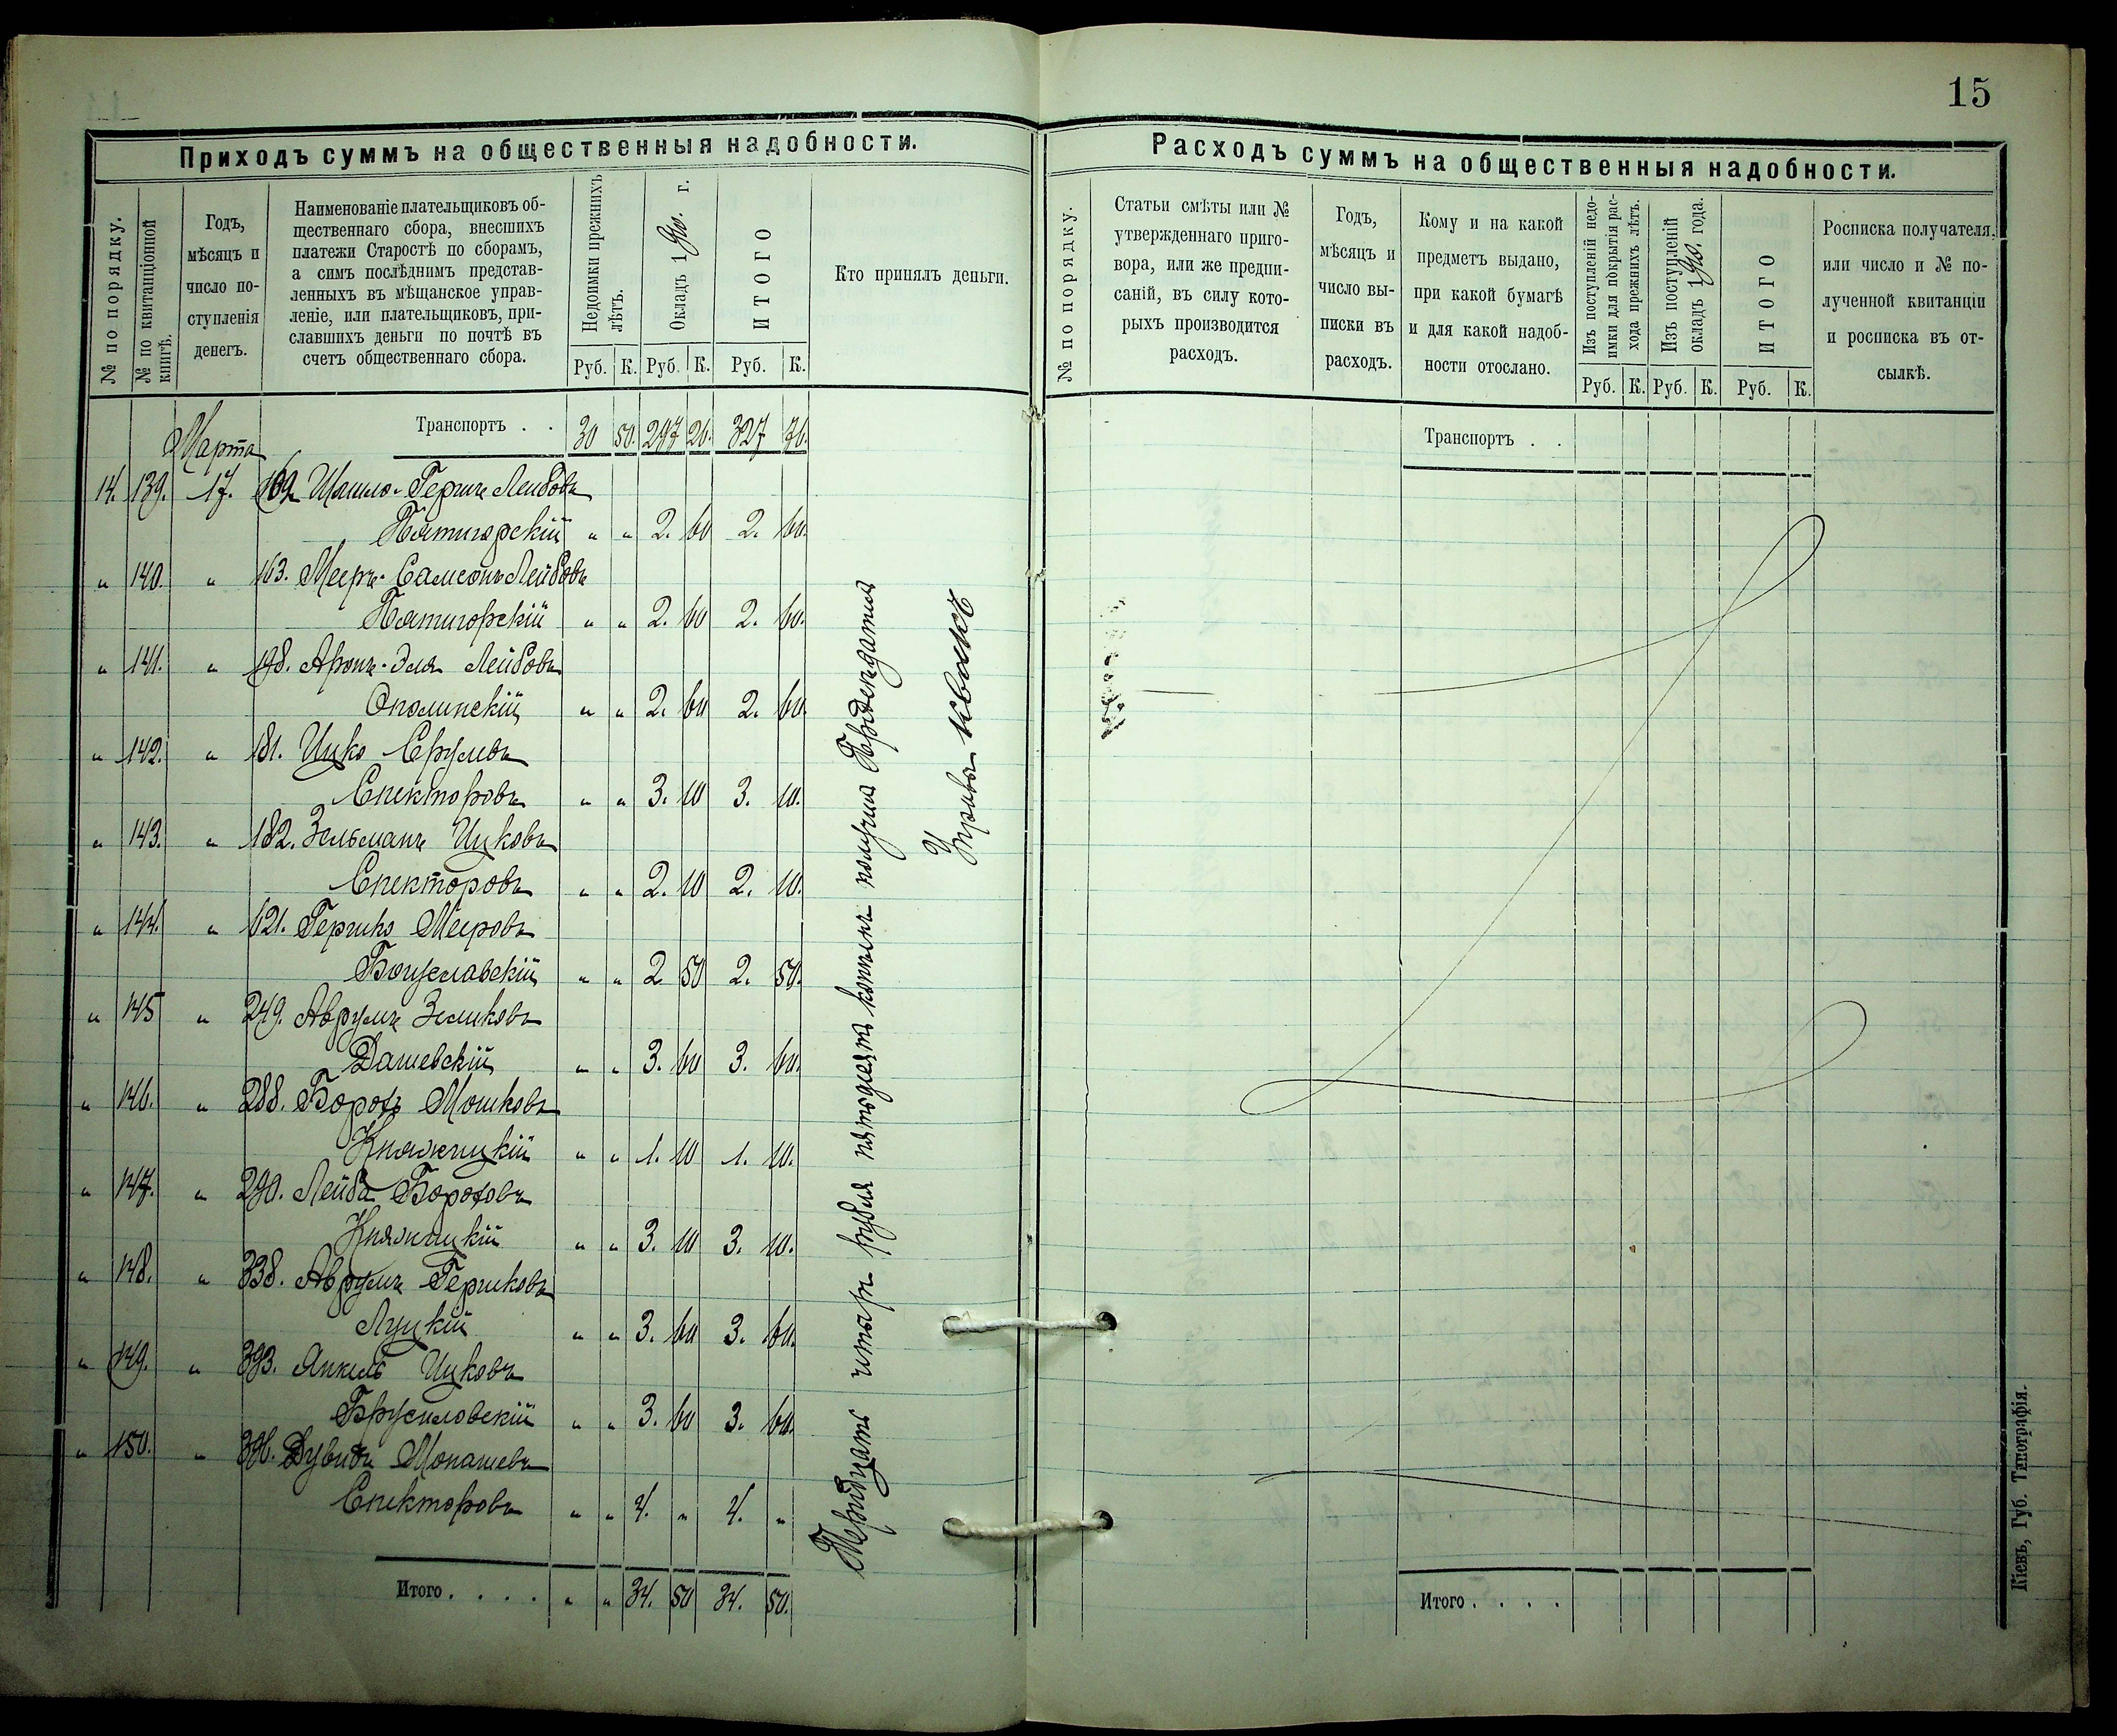 15
Приходъ суммъ на общественныя надобности.
№ по порядку.
№ по квитанціонной книгѣ.
Годъ, мѣсяцъ и число поступленія денегъ.
Наименованіе плательщиковъ об-
щественнаго сбора, внесшихъ
платежи Старостѣ по сборамъ,
а симъ послѣднимъ представ-
ленныхъ въ мѣщанское управ-
леніе, или плательщиковъ, при-
славшихъ деньги по почтѣ въ
счетъ общественнаго сбора.
Недоимки прежнихъ лѣтъ.
Окладъ 1910. г.
ИТОГО
Кто принялъ деньги.
Руб. К. Руб. К. Руб. К.
Транспортъ . . 30 50. 297 20. 327 70.
Марта
14. 139. 17. 162 Шмило-Гершъ Лейбовъ
Пятигорскій " " 2. 60 2. 60.
" 140. " 163. Мееръ-Самсонъ Лейбовъ
Пятигорскій " " 2. 60 2. 60.
" 141. " 198. Аронъ-Эля Лейбовъ
Ополинскій " " 2. 60 2. 60.
" 142. " 181. Ицко Срулевъ
Спекторовъ " " 3. 10 3. 10.
" 143. " 182. Зельманъ Ицковъ
Спекторовъ " " 2. 10 2. 10.
" 144. " 621. Гершко Мееровъ
Богуславскій " " 2 50 2. 50.
" 145 " 249. Аврумъ Зеликовъ
Дашевскій " " 3. 60 3. 60.
" 146. " 288. Борохъ Мошковъ
Княжицкій " " 1. 10 1. 10.
" 147. " 290. Лейба Бороховъ
Княжицкій " " 3. 10 3. 10.
" 148. " 338. Аврумъ Гершковъ
Луцкій " " 3. 60 3. 60.
" 149. " 393. Янкель Ицковъ
Брусиловскій " " 3. 60 3. 60.
" 150. " 396. Дувидъ Монашевъ
Спекторовъ " " 4. " 4. "
Итого . . . . " " 34. 50 34. 50.
Тридцать четыре рубля пятьдесятъ копѣекъ получилъ Предсѣдатель
Управы
Расходъ суммъ на общественныя надобности.
№ по порядку.
Статьи смѣты или №
утвержденнаго приго-
вора, или же предпи-
саній, въ силу кото-
рыхъ производится
расходъ.
Годъ,
мѣсяцъ и
число вы-
писки въ
расходъ.
Кому и на какой
предметъ выдано,
при какой бумагѣ
и для какой надоб-
ности отослано.
Изъ поступленій недо-
имки для покрытія рас-
хода прежнихъ лѣтъ.
Изъ поступленій
окладъ 1910. года.
ИТОГО
Росписка получателя,
или число и № по-
лученной квитанціи
и росписка въ от-
сылкѣ.
Руб. К. Руб. К. Руб. К.
Транспортъ . .
Итого . . . .
Кіевъ, Губ. Типографія.